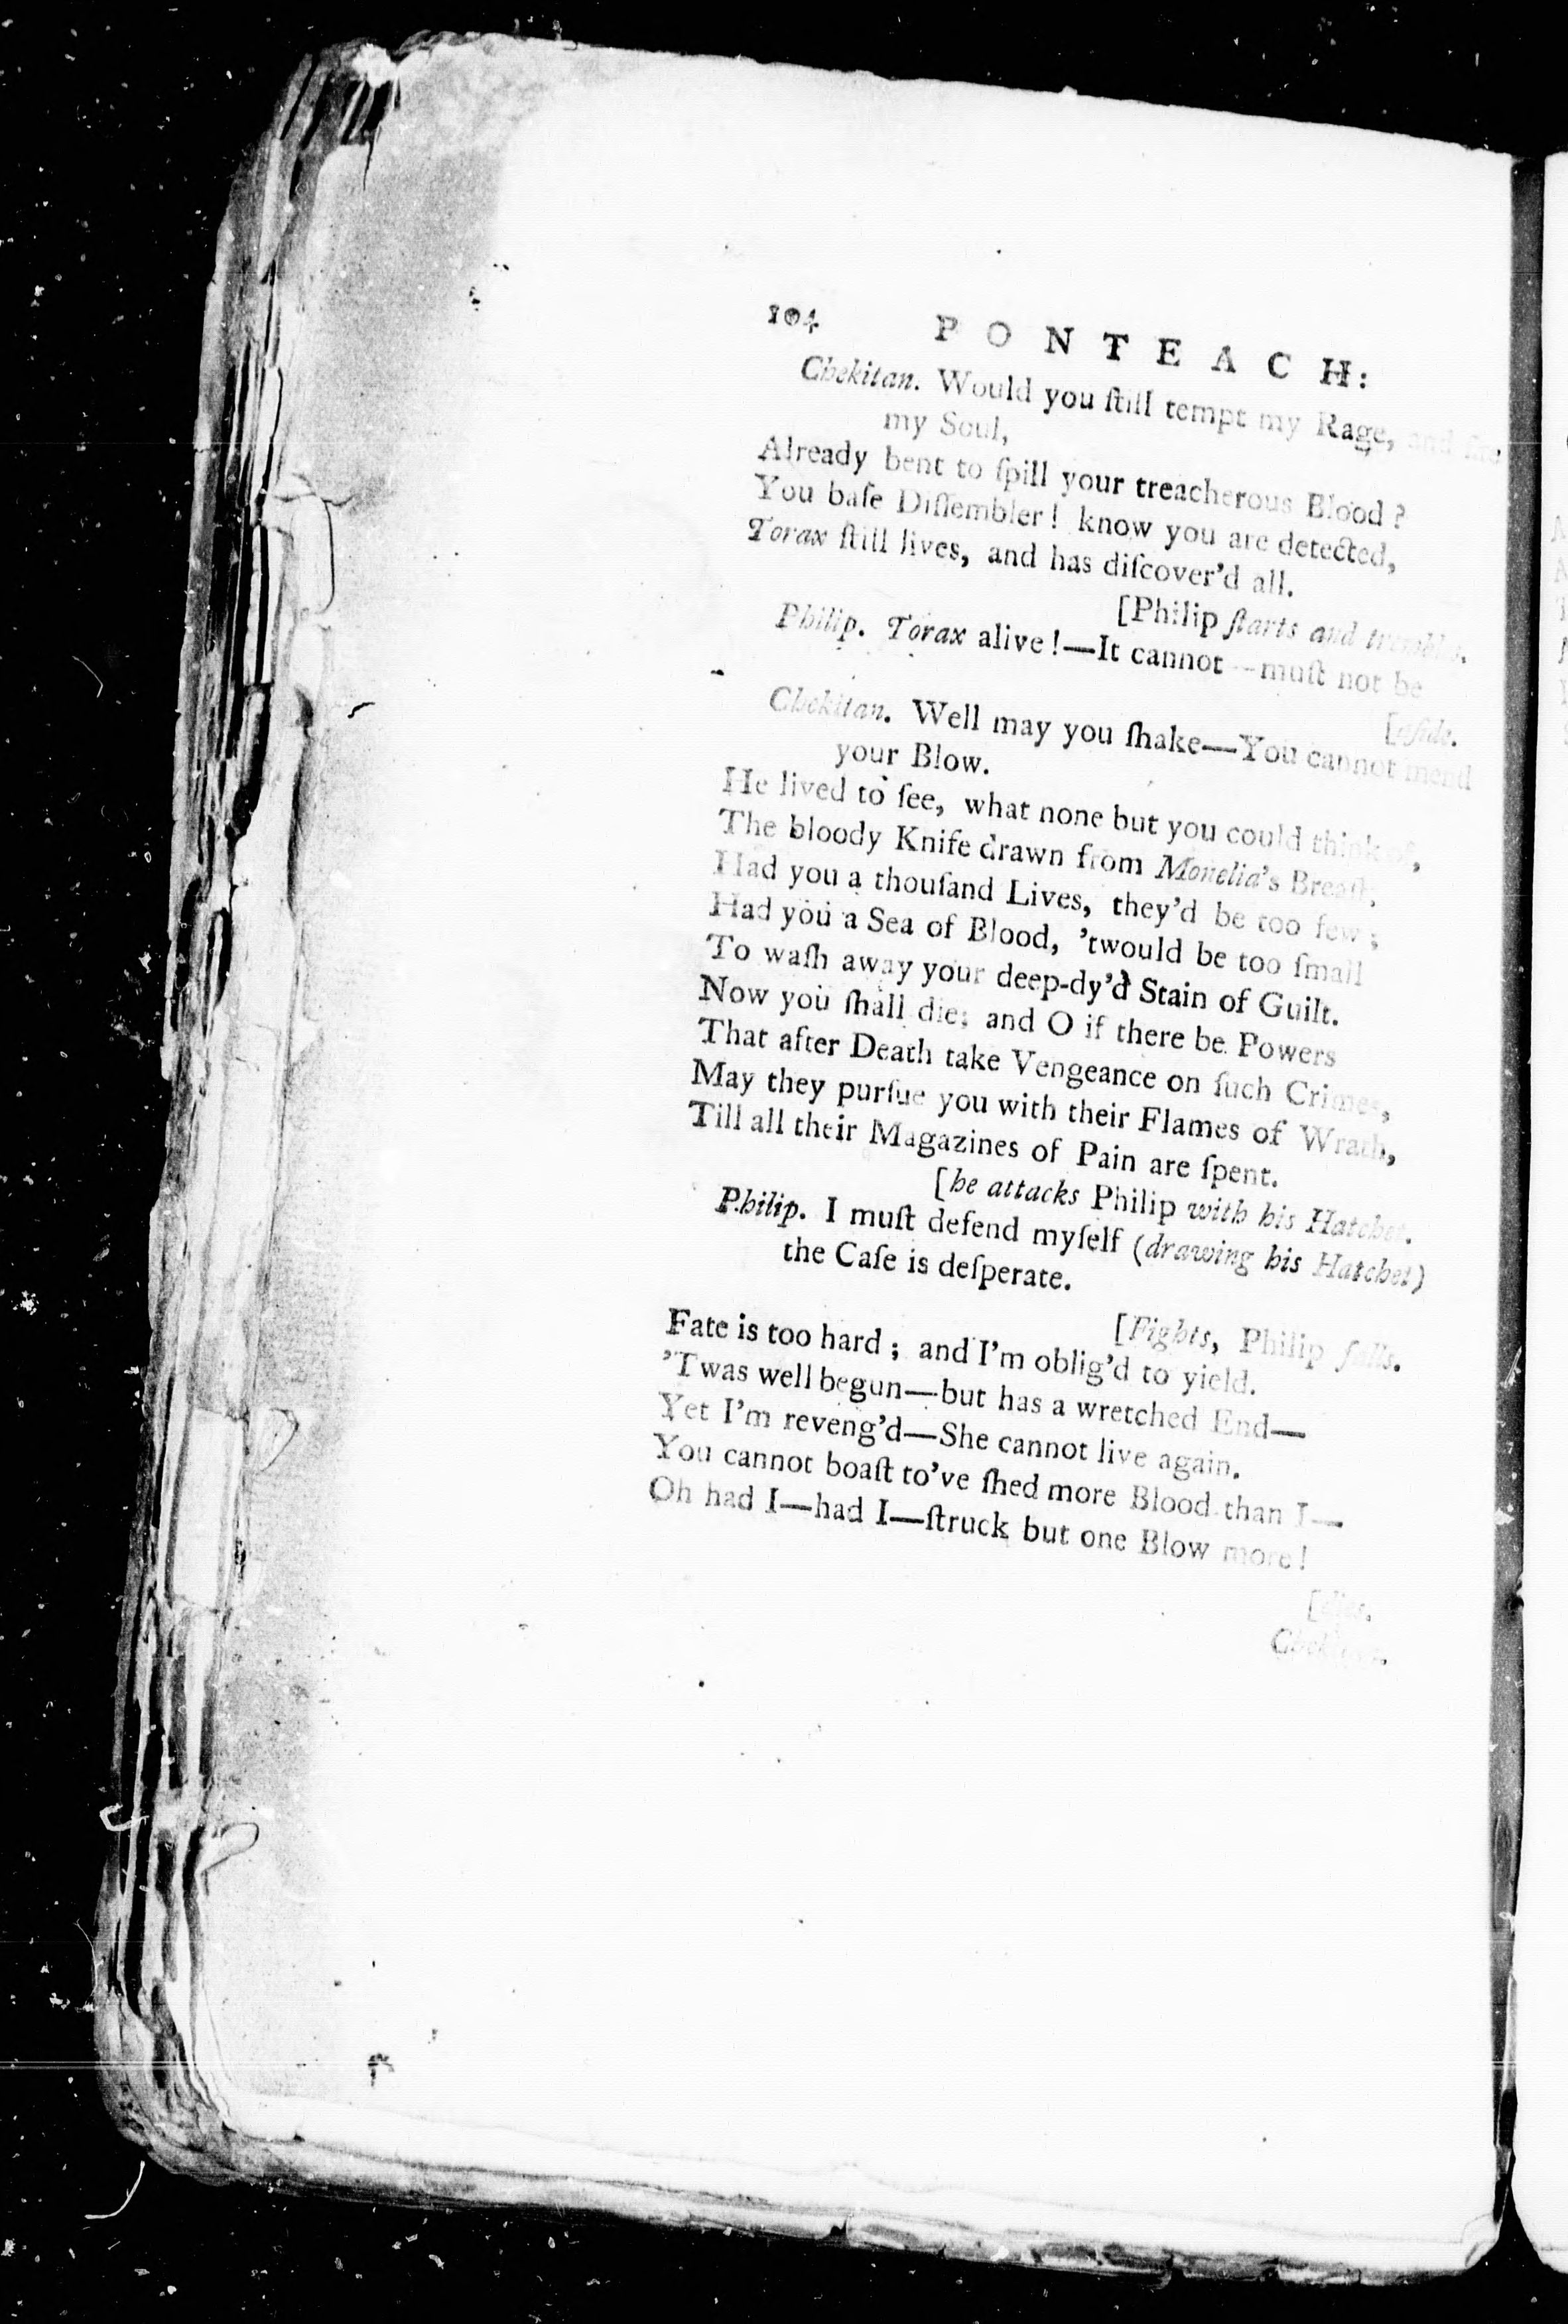 104 PONTEACH:
Chekitan. Would you ſtill tempt my Rage, and
my Soul,
Already bent to ſpill your treacherous Blood?
You baſe Diſſembler! know you are detected,
Torax ſtill lives, and has diſcover'd all.
[Philip ſtarts and trembles.
Philip. Torax alive!—It cannot—muſt not be
[aſide.
Chekitan. Well may you ſhake—You cannot mend
your Blow.
He lived to ſee, what none but you could think of,
The bloody Knife drawn from Monelia's Breaſt;
Had you a thouſand Lives, they'd be too few;
Had you a Sea of Blood, 'twould be too ſmall
To waſh away your deep-dy'd Stain of Guilt.
Now you ſhall die; and O if there be Powers
That after Death take Vengeance on ſuch Crimes,
May they purſue you with their Flames of Wrath,
Till all their Magazines of Pain are ſpent.
[he attacks Philip with his Hatchet.
Philip. I muſt defend myſelf (drawing his Hatchet)
the Caſe is deſperate.
[Fights, Philip falls.
Fate is too hard; and I'm oblig'd to yield.
'Twas well begun—but has a wretched End—
Yet I'm reveng'd—She cannot live again.
You cannot boaſt to've ſhed more Blood than I—
Oh had I—had I—ſtruck but one Blow more!
[dies.
Chekitan.